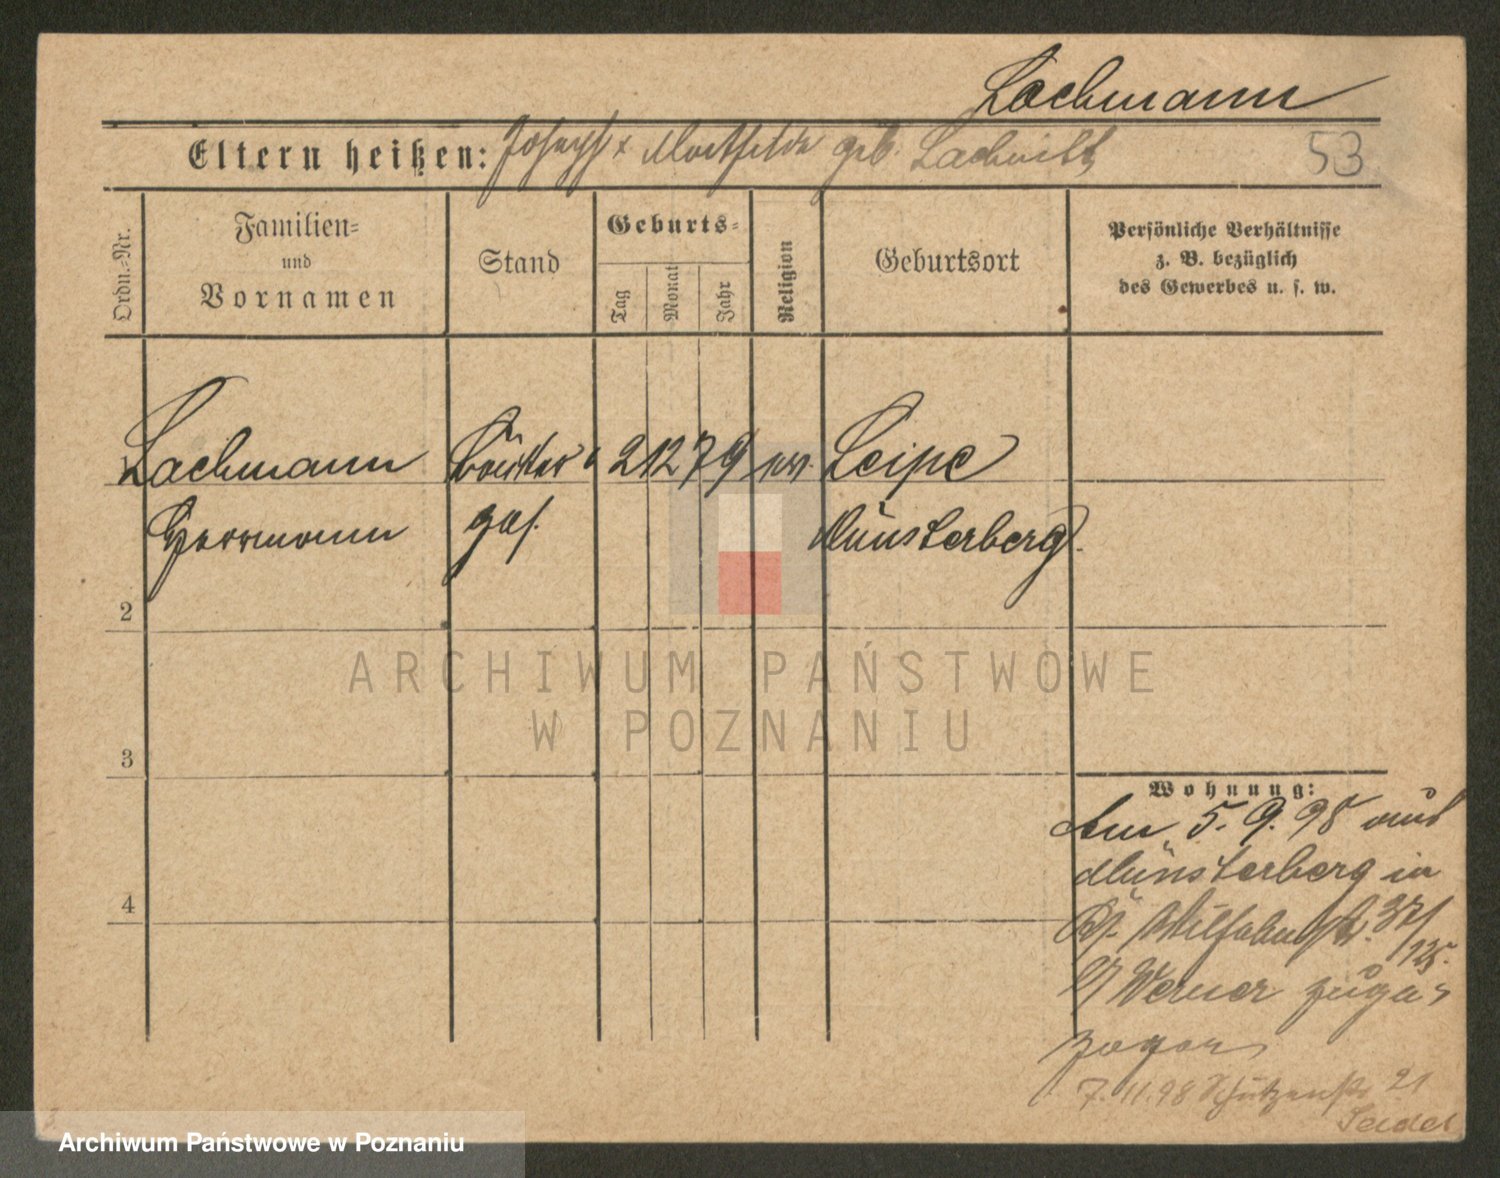 Lachmann
Eltern heißen: Joseph x geb. Lachnitt
53
Ordn.-Nr.
Familien-
und
Vornamen
Stand
Geburts-
Tag
Monat
Jahr
Religion
Geburtsort
Persönliche Verhältnisse
z. B. bezüglich
des Gewerbes u. s. w.
Lachmann 2 12 79 Leipe
Herrmann Münsterberg.
2
ARCHIWUM PAŃSTWOWE
W POZNANIU
3
Wohnung:
Am 5. 9. 98 aus
Münsterberg in
4
37/
125.
b/ Werner zuge-
zogen
7. 11. 98 Schützenstr 21
Seidel
Archiwum Państwowe w Poznaniu